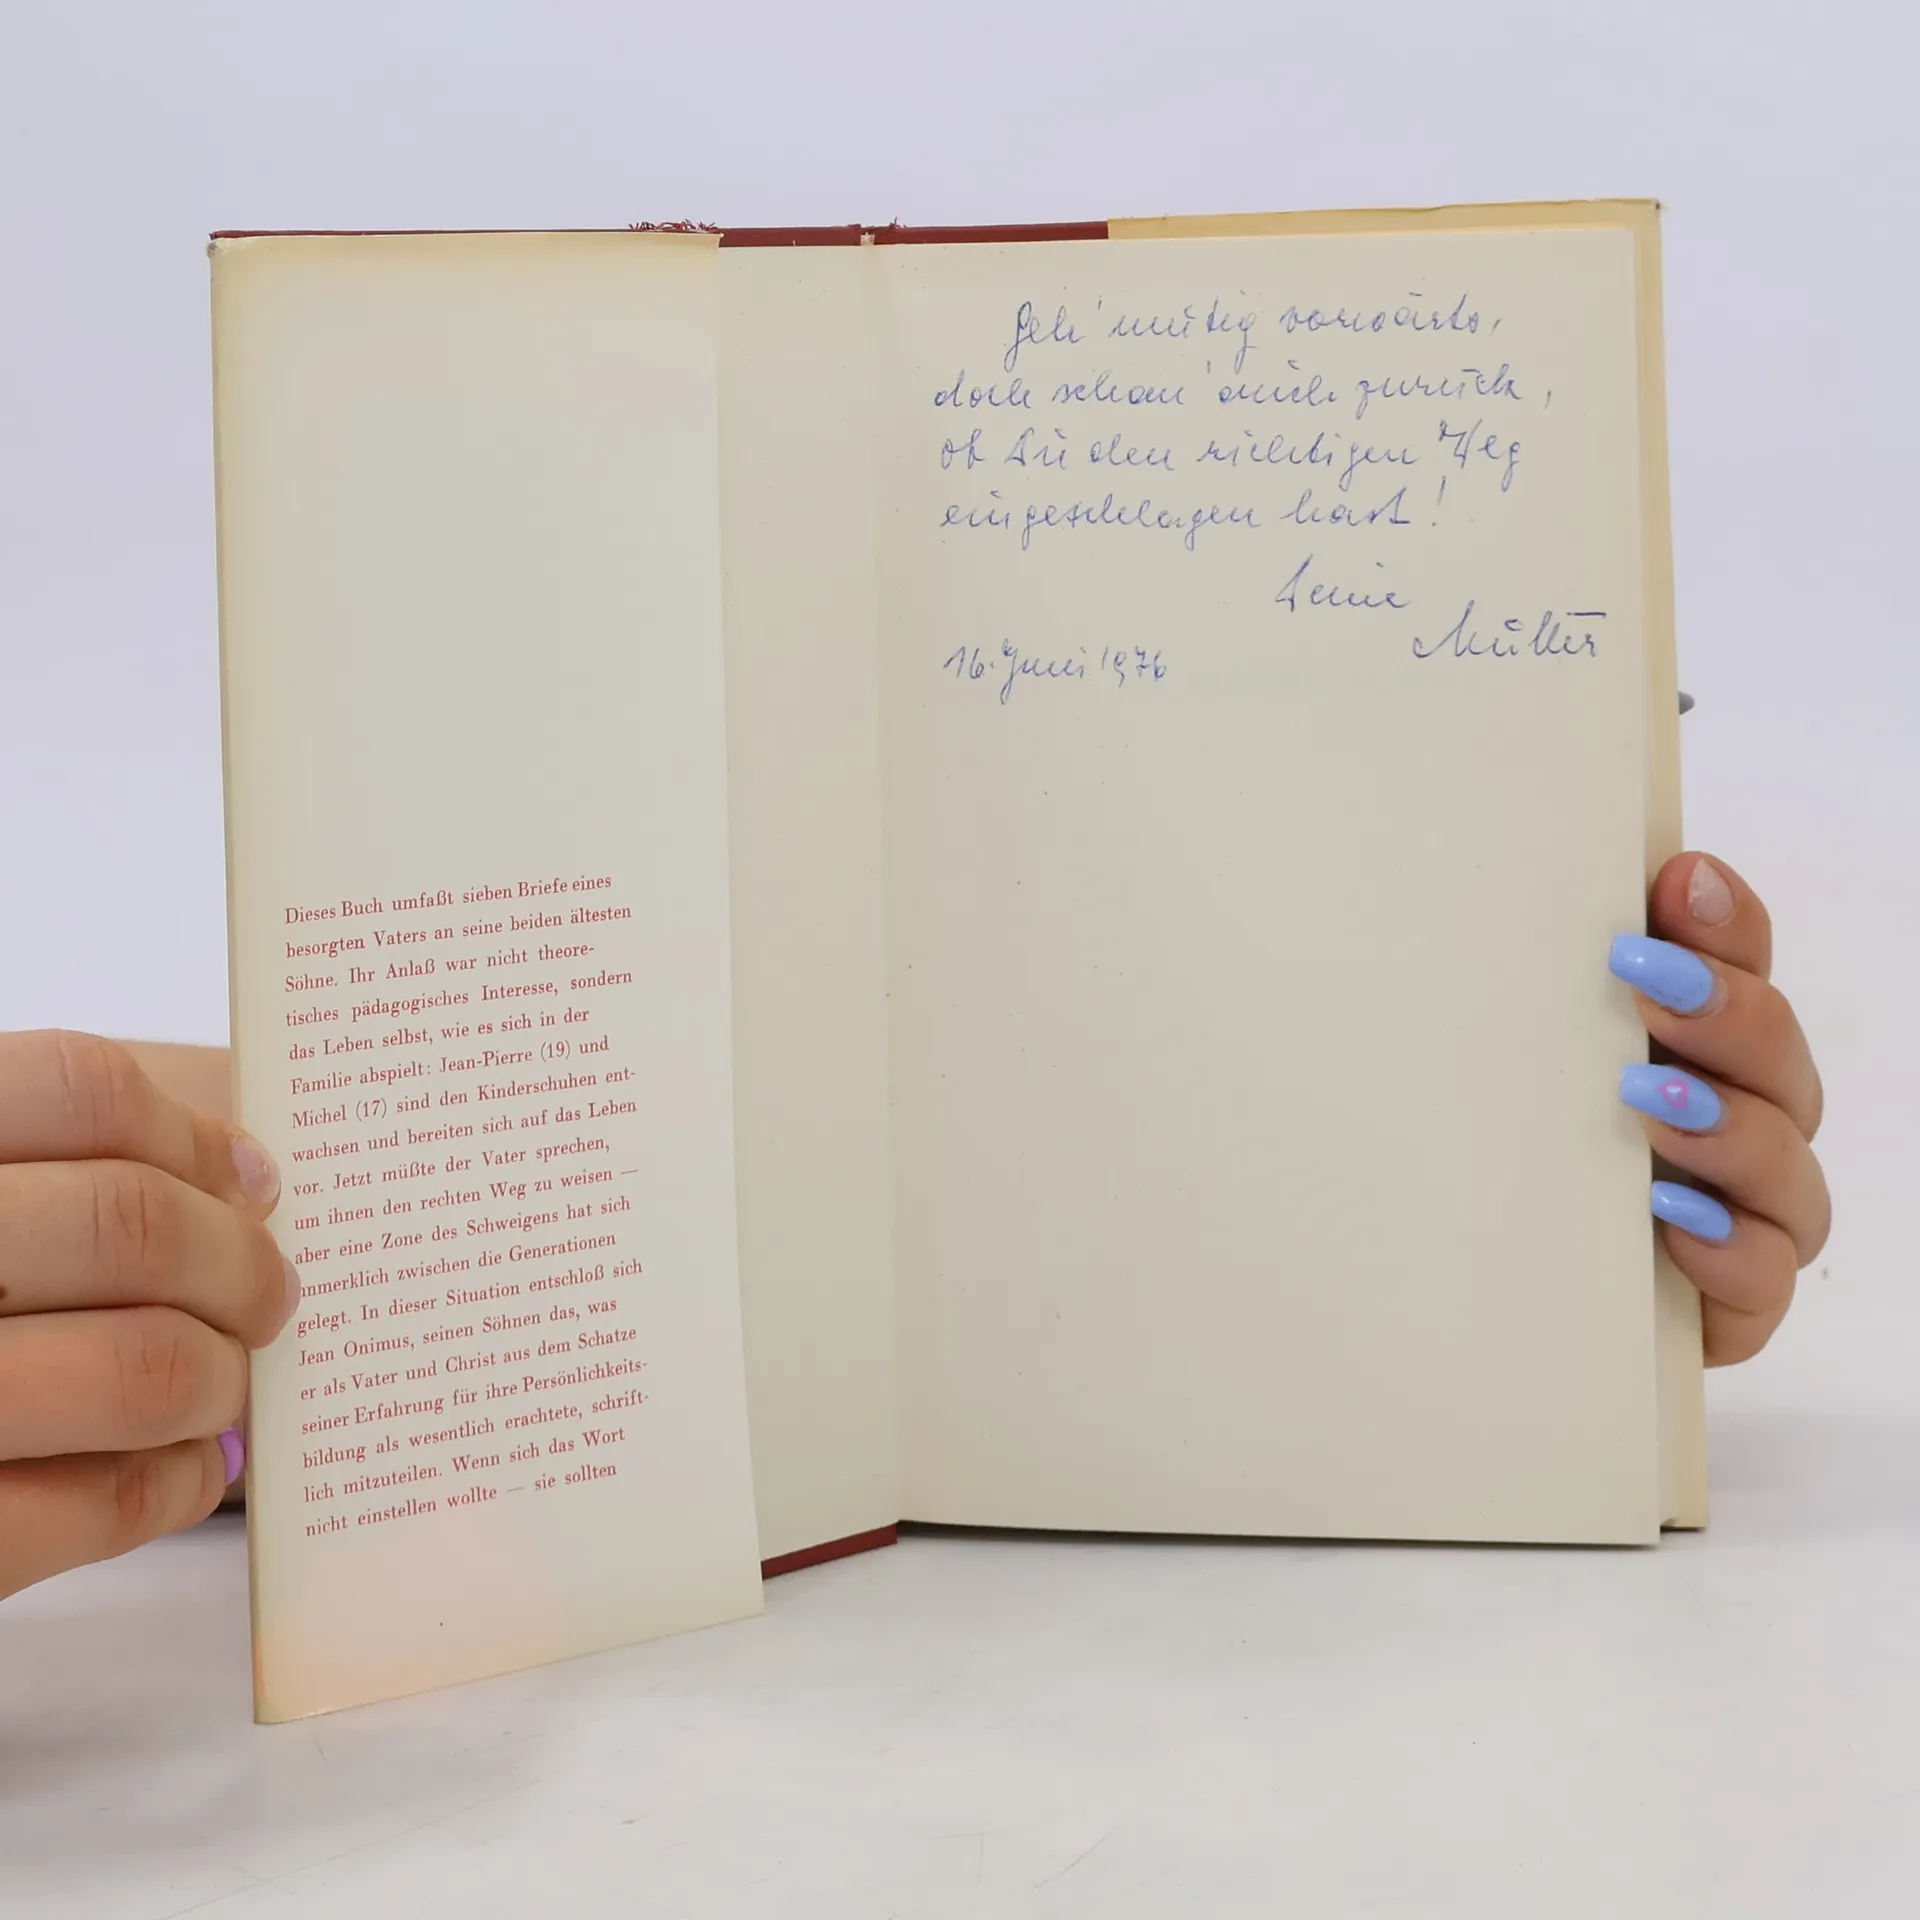 Dieses Buch umfaßt sieben Briefe eines
besorgten Vaters an seine beiden ältesten
Söhne. Ihr Anlaß war nicht theore-
tisches pädagogisches Interesse, sondern
das Leben selbst, wie es sich in der
Familie abspielt: Jean-Pierre (19) und
Michel (17) sind den Kinderschuhen ent-
wachsen und bereiten sich auf das Leben
vor. Jetzt müßte der Vater sprechen,
um ihnen den rechten Weg zu weisen —
aber eine Zone des Schweigens hat sich
unmerklich zwischen die Generationen
gelegt. In dieser Situation entschloß sich
Jean Onimus, seinen Söhnen das, was
er als Vater und Christ aus dem Schatze
seiner Erfahrung für ihre Persönlichkeits-
bildung als wesentlich erachtete, schrift-
lich mitzuteilen. Wenn sich das Wort
nicht einstellen wollte — sie sollten
Geh' mutig vorwärts,
doch schau' auch zurück,
ob Du den richtigen Weg
eingeschlagen hast!
Deine
Mutter
16. Juni 1976